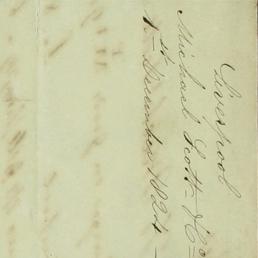 Liverpool
Michael Scott & Co
1st December 1824